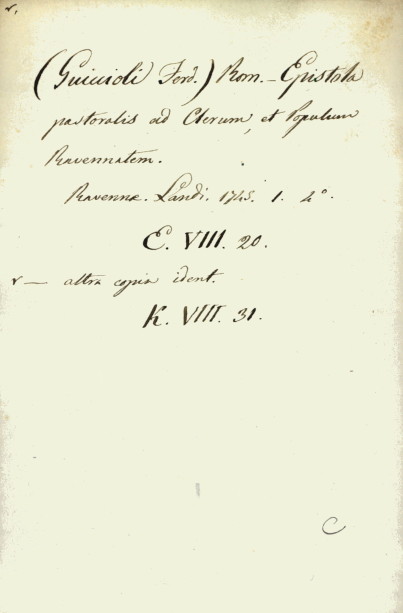 v.
(Guiccioli Ferd.) Rom. - Epistola
pastoralis ad Clerum, et Populum
Ravennatem.
Ravennæ. Landi. 1745. 1. 4°.
E. VIII. 20.
v — altra copia ident.
K. VIII. 31.
C